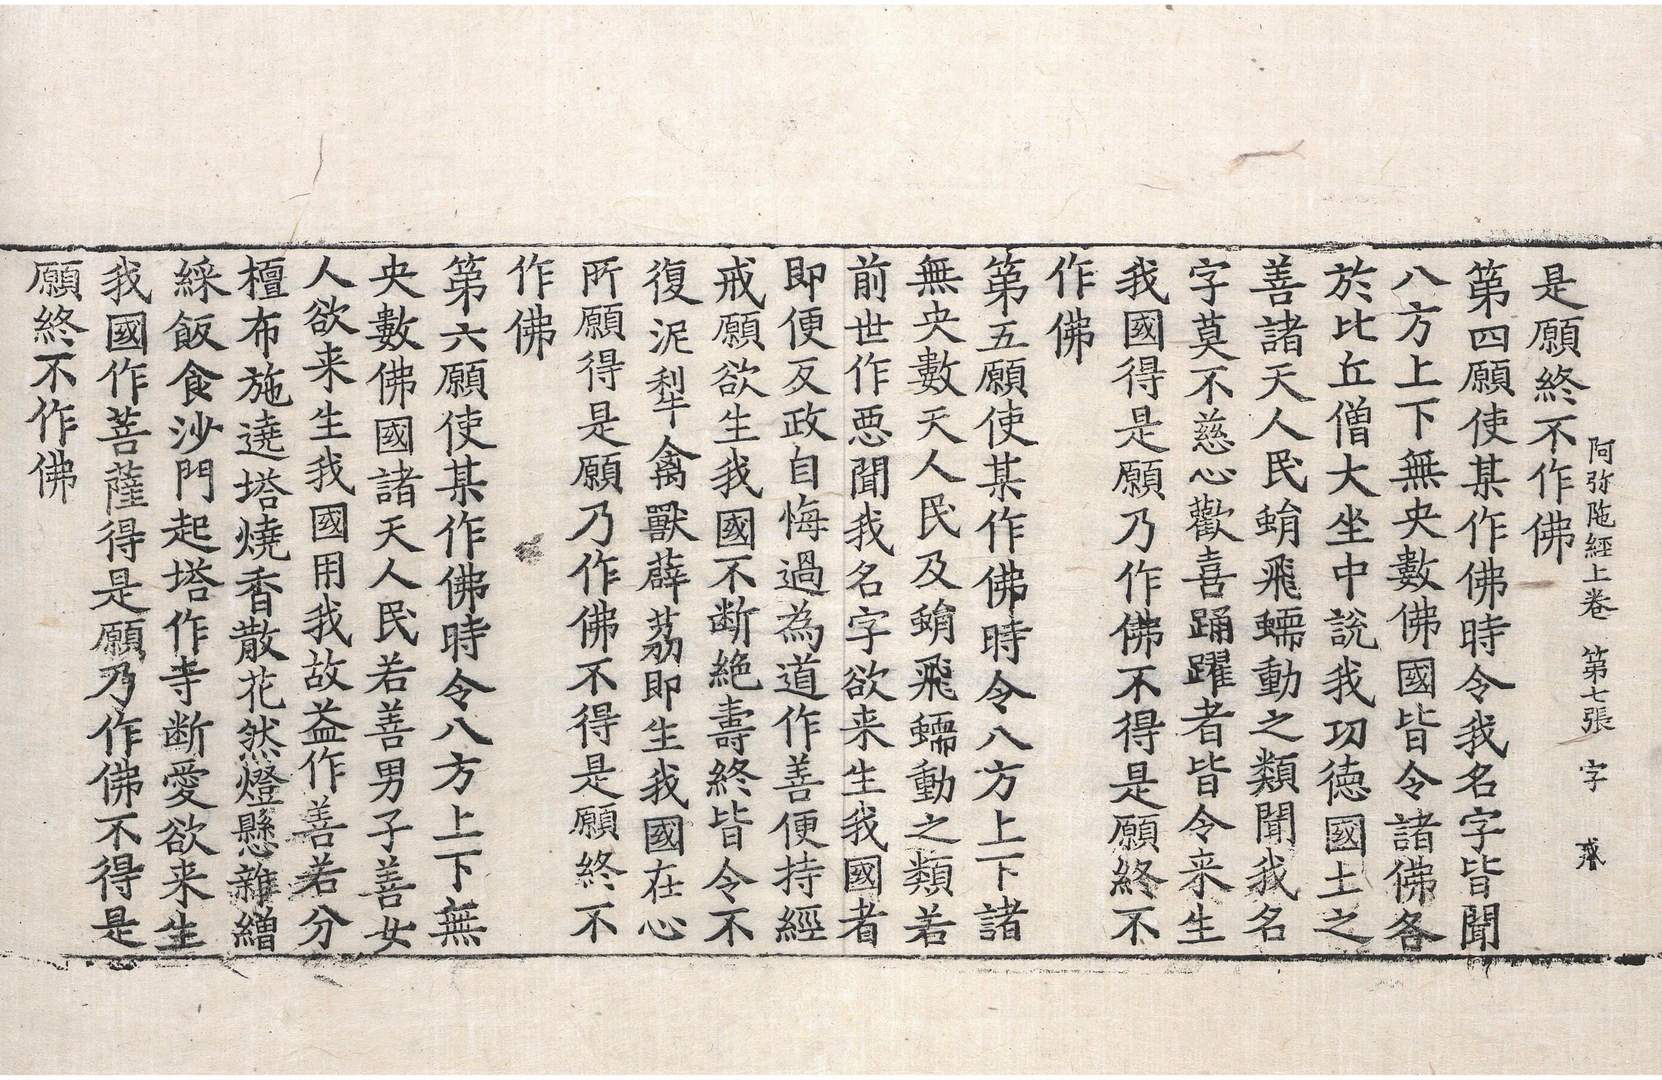 阿弥陁經上卷 第七張 字 
是願終不作佛
第四願使某作佛時令我名字皆聞
八方上下無央數佛國皆令諸佛各
於比丘僧大坐中說我功德國土之
善諸天人民蜎飛蠕動之類聞我名
字莫不慈心歡喜踊躍者皆令来生
我國得是願乃作佛不得是願終不
作佛
第五願使某作佛時令八方上下諸
無央數天人民及蜎飛蠕動之類若
前世作惡聞我名字欲来生我國者
即便反政自悔過為道作善便持經
戒願欲生我國不断絶壽終皆令不
復泥犁禽獸薜荔即生我國在心
所願得是願乃作佛不得是願終不
作佛
第六願使某作佛時令八方上下無
央數佛國諸天人民若善男子善女
人欲来生我國用我故益作善若分
檀布施遶塔燒香散花然燈懸雜繒
綵飯食沙門起塔作寺断愛欲来生
我國作菩薩得是願乃作佛不得是
願終不作佛